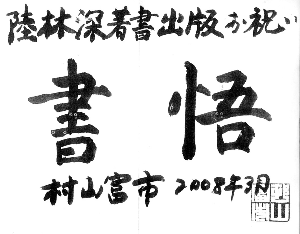 陸林深著書出版お祝い
書悟
村山富市 2008年3月